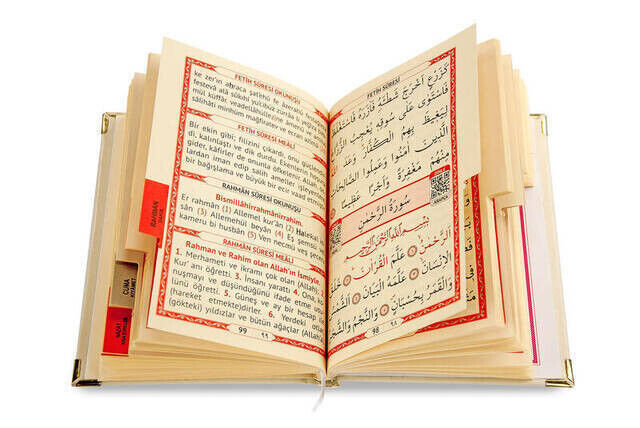 FETİH SÛRESİ OKUNUŞU
ke zer'ın ahraca şat'ehû fe âzerahû
festevâ alâ sûkıhî yu'cibüz zürrâa li yeğîza bihi
mül küffâr, veadellâhüllezîne âmenû ve
sâlihâti minhüm mağfiratev ve ecran azîmâ
FETİH SÛRESİ MEÂLİ
Bir ekin gibi; filizini çıkardı, onu güçlen
di, kalınlaştı ve dik durdu. Esenlerin hoşuna
gider, kâfirler de onunla öfkelenir. Allah,
lardan iman edip salih ameller işleyenle
bir bağışlama ve büyük bir ecir vaad
RAHMÂN SÛRESİ OKUNUŞU
Bismillâhirrahmânirrahîm.
Er rahmân (1) Allemel kur'ân (2) Halekal
sân (3) Allemehül beyân (4) Eş şemsü
kameru bi husbân (5) Ven necmü veş
RAHMÂN SÛRESİ MEÂLİ
Rahman ve Rahim olan Allah'ın ismiyle.
1. Merhameti ve ikramı çok olan (Allah) 2.
Kur'anı öğretti. 3. İnsanı yarattı 4. Ona, ko
nuşmayı ve düşündüğünü ifade etme
ünü öğretti. 5. Güneş ve ay bir hesap
(hareket etmektedir)ler. 6. Yerdeki otlar
(gökteki) yıldızlar ve bütün ağaçlar (Allah'
99 ٩٩
RAHMÂN
CUMA
FETİH SÛRESİ
كَزَرْعٍ اَخْرَجَ شَطْـَٔهُ فَاٰزَرَهُ فَاسْتَغْلَظَ
فَاسْتَوٰى عَلٰى سُوقِهٖ يُعْجِبُ الزُّرَّاعَ
لِيَغٖيظَ بِهِمُ الْكُفَّارَ وَعَدَ
اللّٰهُ الَّذٖينَ اٰمَنُوا وَعَمِلُوا الصَّالِحَاتِ
مِنْهُمْ مَغْفِرَةً وَاَجْرًا عَظٖيمًا
سُورَةُ الرَّحْمٰنِ
بِسْمِ اللّٰهِ الرَّحْمٰنِ الرَّحٖيمِ
اَلرَّحْمٰنُ عَلَّمَ الْقُرْاٰنَ خَلَقَ
الْاِنْسَانَ عَلَّمَهُ الْبَيَانَ اَلشَّمْسُ
وَالْقَمَرُ بِحُسْبَانٍ وَالنَّجْمُ وَالشَّجَرُ
98 ٩٨